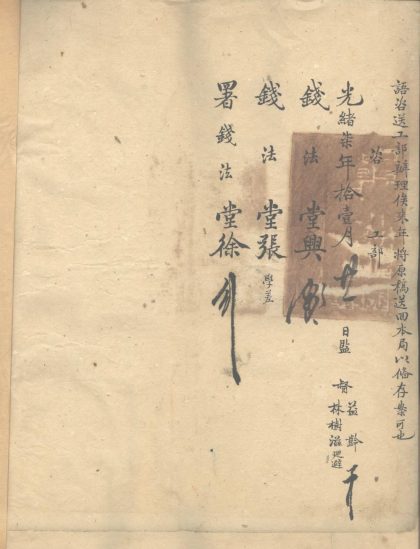 語咨送工部辦理俟來年將原稿送回本局以俻存案可也
咨 工部
光緒柒年拾壹月廿 日監督 益齡 林樹滋迴避
錢法堂興
錢法堂張 學差
署錢法堂徐